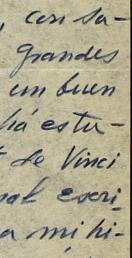 , con sa-
grandes
un buen
há estu-
de Vinci
escri-
a mi hi-